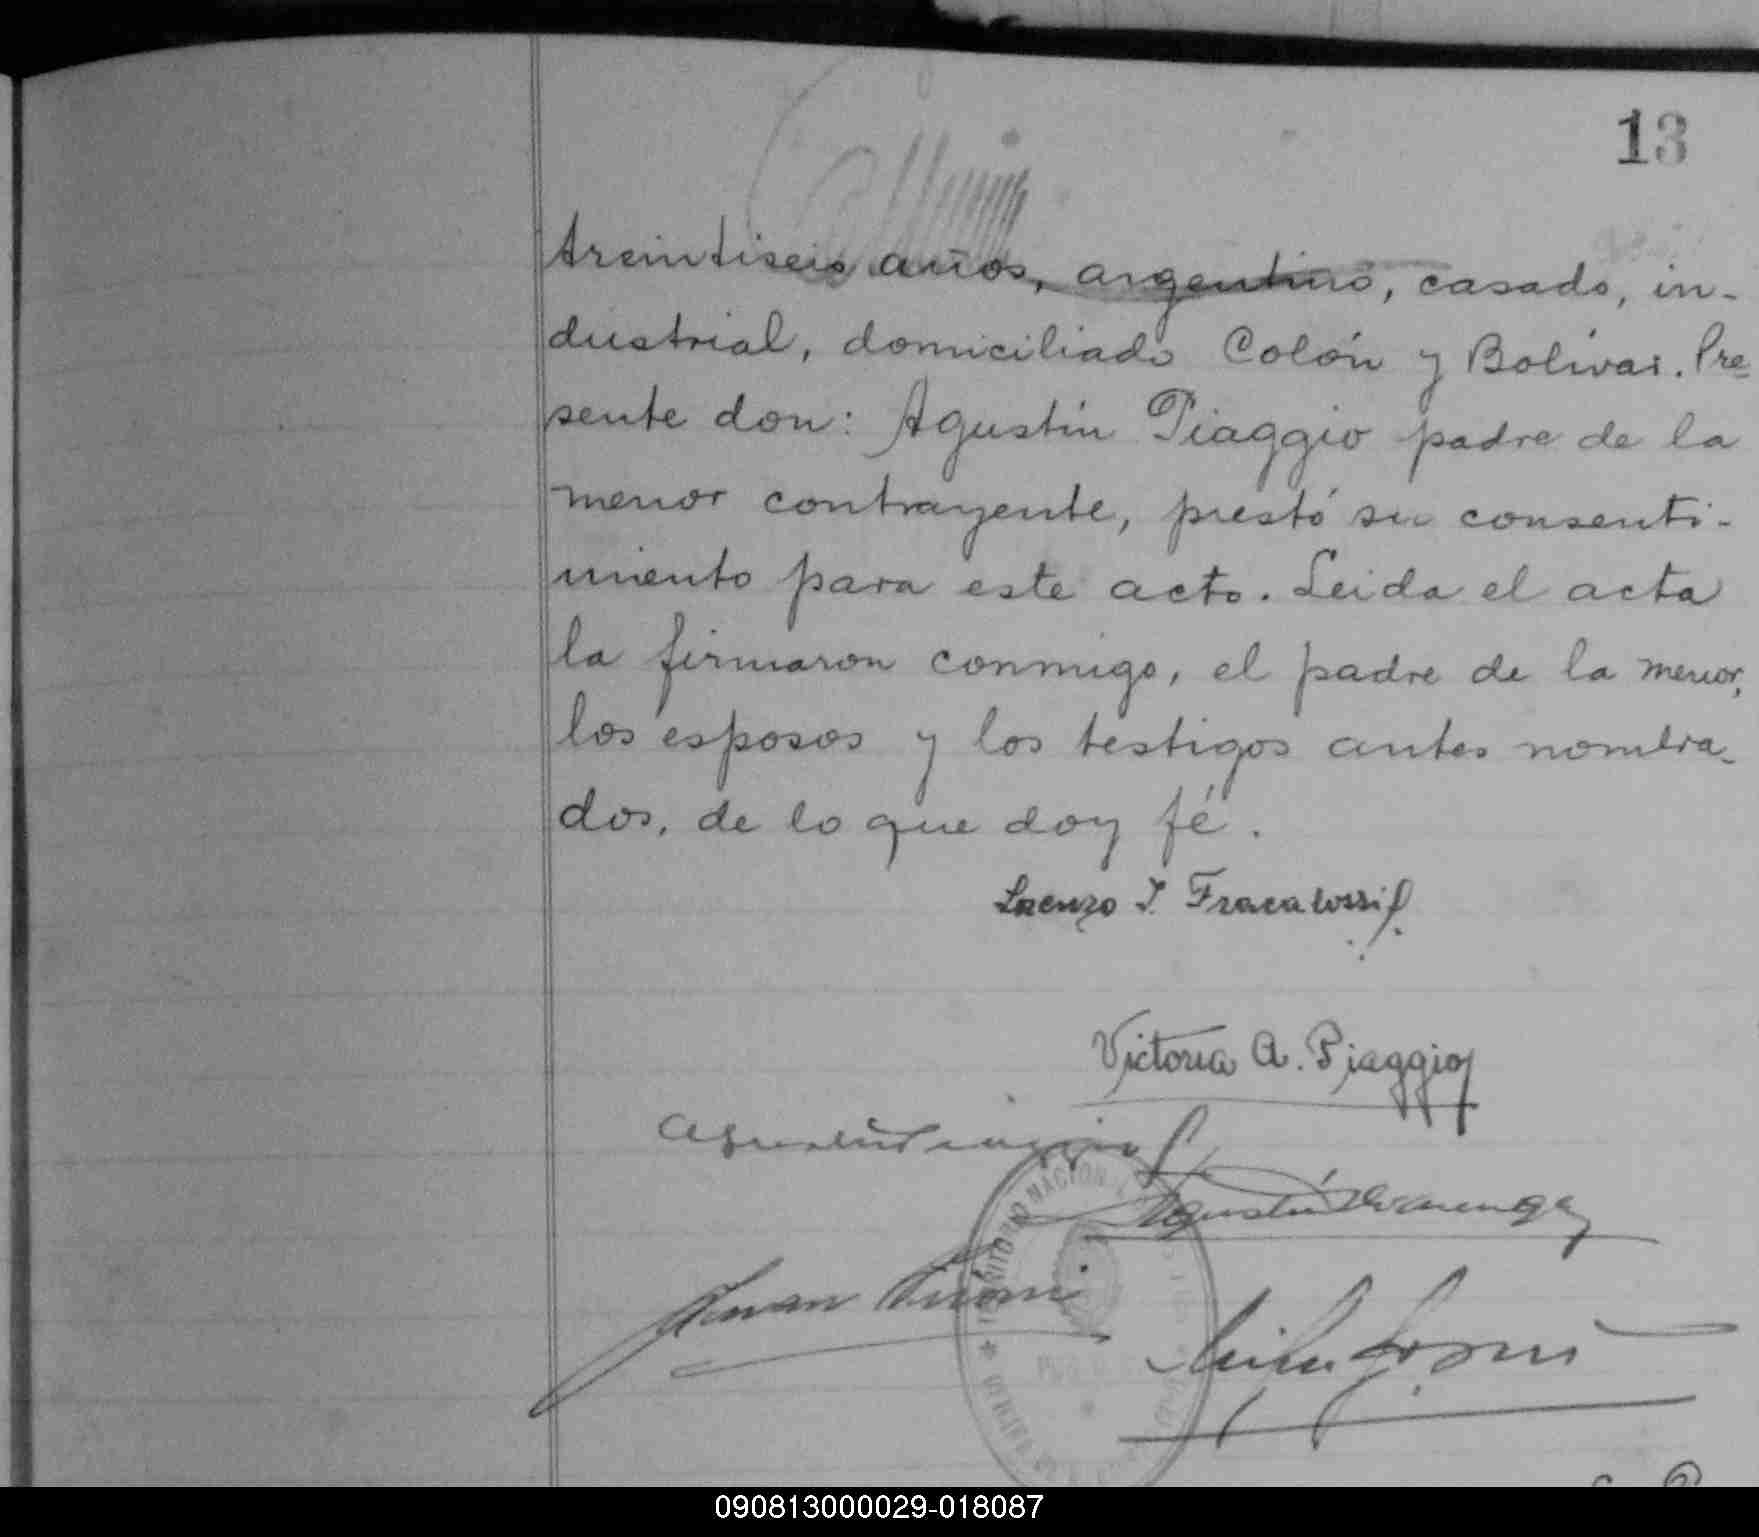 13
treintiseis años, argentino, casado, in-
dustrial, domiciliado Colón y Bolívar. Pre=
sente don: Agustín Piaggio padre de la
menor contrayente, prestó su consenti-
miento para este acto. Leida el acta
la firmaron conmigo, el padre de la menor,
los esposos y los testigos antes nombra-
dos, de lo que doy fé.
Lorenzo J. Fracalossi
Victoria A. Piaggio
Agustín Piaggio
Agustín
Juan
TERRITORIO NACIONAL
090813000029-018087